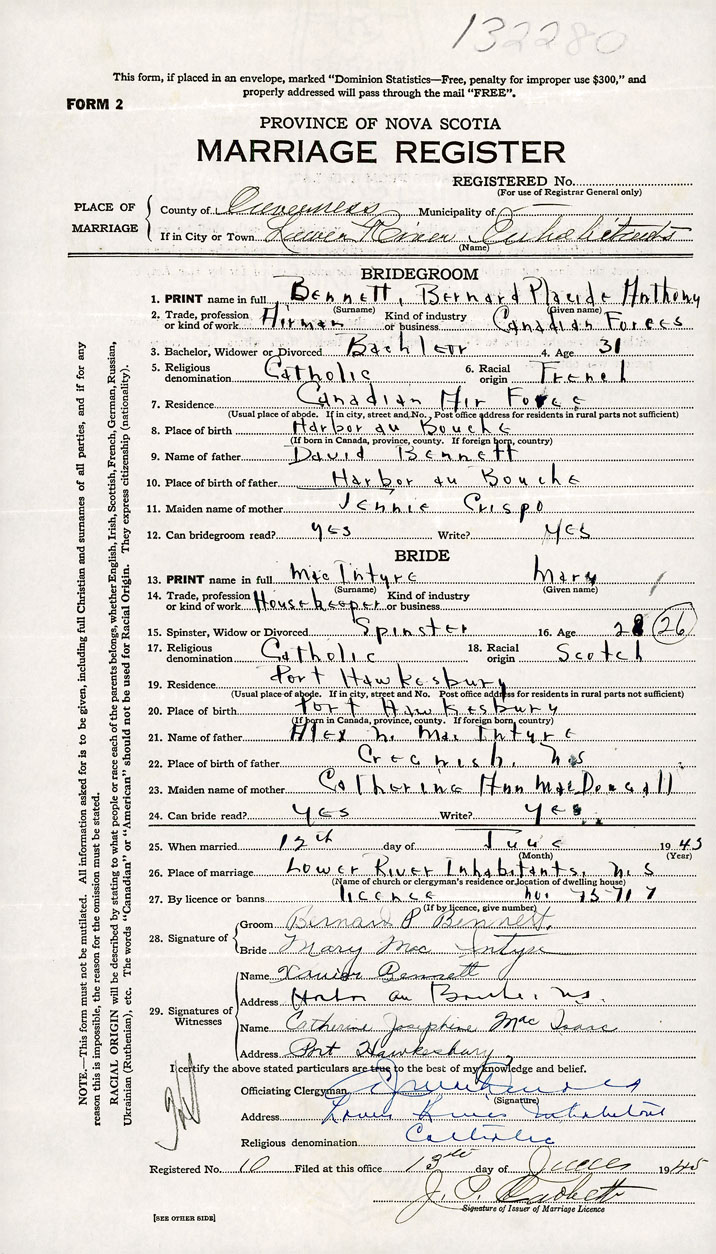 132280
This form, if placed in an envelope, marked "Dominion Statistics—Free, penalty for improper use $300," and
properly addressed will pass through the mail "FREE".
FORM 2
PROVINCE OF NOVA SCOTIA
MARRIAGE REGISTER
REGISTERED No.
(For use of Registrar General only)
PLACE OF MARRIAGE
County of Inverness Municipality of —
If in City or Town Lower River Inhabitants
(Name)
BRIDEGROOM
1. PRINT name in full Bennett, Bernard Placide Anthony
(Surname) (Given name)
2. Trade, profession or kind of work Airman Kind of industry or business Canadian Forces
3. Bachelor, Widower or Divorced Bachleor 4. Age 31
5. Religious denomination Catholic 6. Racial origin French
7. Residence Canadian Air Force
(Usual place of abode. If in city, street and No. Post office address for residents in rural parts not sufficient)
8. Place of birth Harbor au Bouche
(If born in Canada, province, county. If foreign born, country)
9. Name of father David Bennett
10. Place of birth of father Harbor au Bouche
11. Maiden name of mother Jennie Crispo
12. Can bridegroom read? yes Write? yes
BRIDE
13. PRINT name in full MacIntyre Mary
(Surname) (Given name)
14. Trade, profession or kind of work Housekeeper Kind of industry or business
15. Spinster, Widow or Divorced Spinster 16. Age 28 (26)
17. Religious denomination Catholic 18. Racial origin Scotch
19. Residence Port Hawkesbury
(Usual place of abode. If in city, street and No. Post office address for residents in rural parts not sufficient)
20. Place of birth Port Hawkesbury
(If born in Canada, province, county. If foreign born, country)
21. Name of father Alex N. MacIntyre
22. Place of birth of father Creignish, N.S
23. Maiden name of mother Catherine Ann MacDougall
24. Can bride read? yes Write? yes
25. When married 12th day of June 1945
(Month) (Year)
26. Place of marriage Lower River Inhabitants, N.S
(Name of church or clergyman's residence or location of dwelling house)
27. By licence or banns licence no. 75717
(If by licence, give number)
28. Signature of
Groom Bernard P Bennett.
Bride Mary MacIntyre
29. Signatures of Witnesses
Name Xavier Bennett
Address Harbor au Bouche, N.S.
Name Catherine Josephine MacIsaac
Address Port Hawkesbury
I certify the above stated particulars are true to the best of my knowledge and belief.
Officiating Clergyman
(Signature)
Address Lower River Inhabitants
Religious denomination Catholic
Registered No. 10 Filed at this office 13th day of June 1945
J. P.
Signature of Issuer of Marriage Licence
[SEE OTHER SIDE]
NOTE.—This form must not be mutilated. All information asked for is to be given, including full Christian and surnames of all parties, and if for any
reason this is impossible, the reason for the omission must be stated.
RACIAL ORIGIN will be described by stating to what people or race each of the parents belongs, whether English, Irish, Scottish, French, German, Russian,
Ukrainian (Ruthenian), etc. The words "Canadian" or "American" should not be used for Racial Origin. They express citizenship (nationality).